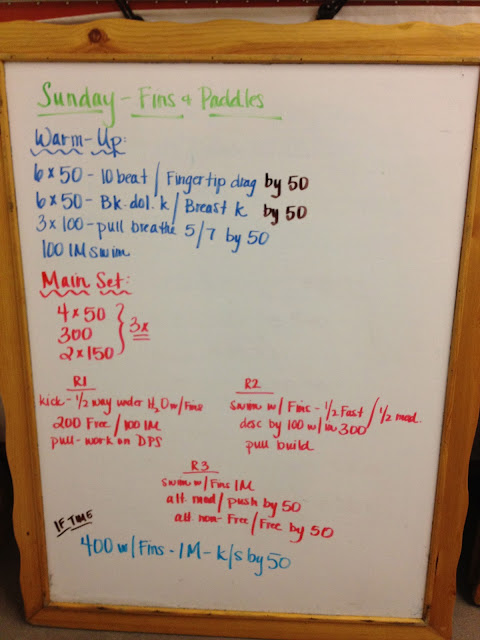 Sunday - Fins & Paddles
Warm-Up:
6 x 50 - 10 beat / Fingertip drag by 50
6 x 50 - Bk. dol. k / Breast k by 50
3 x 100 - pull breathe 5/7 by 50
100 IM swim
Main Set:
4 x 50
300
2 x 150
3x
R1
kick - 1/2 way under H2O w/ Fins
200 Free / 100 IM
pull - work on DPS
R2
swim w/ Fins - 1/2 Fast / 1/2 mod.
desc by 100 w/in 300
pull build
R3
swim w/ Fins IM
alt. mod / push by 50
alt. non-Free / Free by 50
IF TIME
400 w/ Fins - IM - k/s by 50